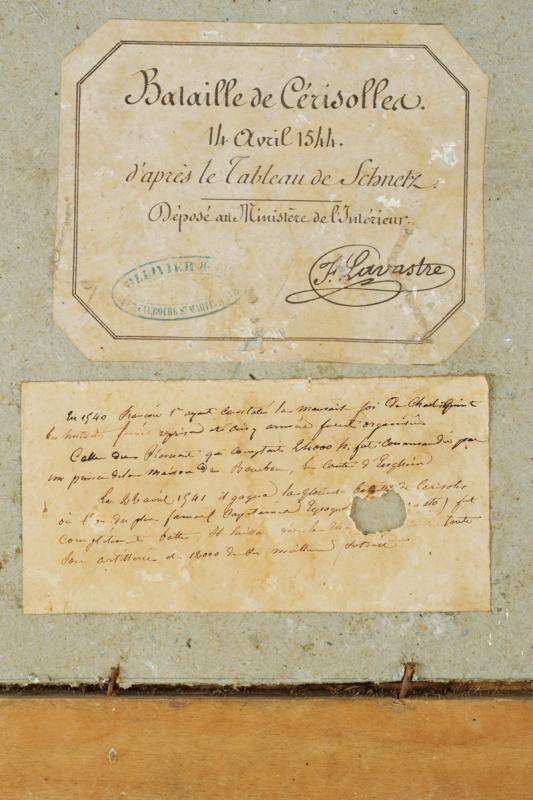 Bataille de Cérisolles.
14 Avril 1544.
d'après le Tableau de Schnetz.
Déposé au Ministère de l'Intérieur.
OLLIVIER &
FAUBOURG St MARTIN
F. Lavastre
En 1540 François 1er ayant constaté la mauvaise foi de Charles Quint
les hostilités furent reprises et cinq armées furent organisées
Celle du Piémont qui comptait 21.000 h. fut commandée par
un prince de la maison de Bourbon, le Comte d'Enghien
Le 26 avril 1541 il gagna la glorieuse bataille de Cerisoles
où l'un des plus fameux Capitaines Espagnols fut
complètement battu, il laissa toute
son artillerie et 12000 de ses meilleurs soldats